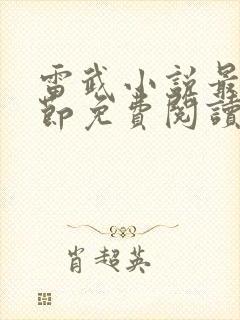 雷武小説最
節免費閱讀
肖超英